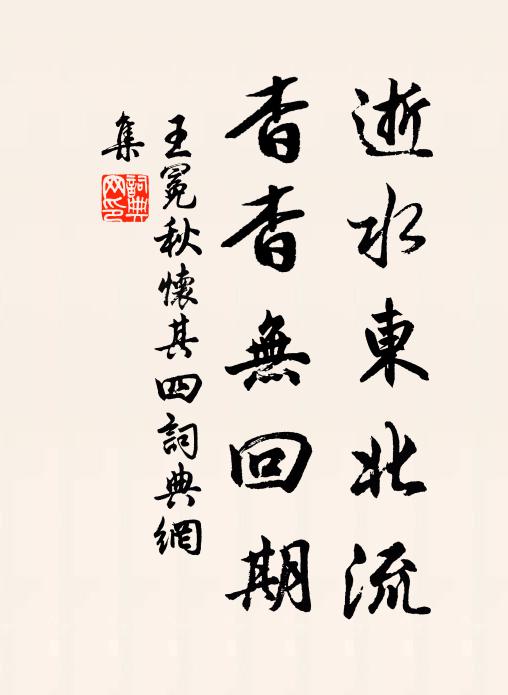 逝水東北流
杳杳無回期
王冕秋懷其四詞典網
集
詞典
网印